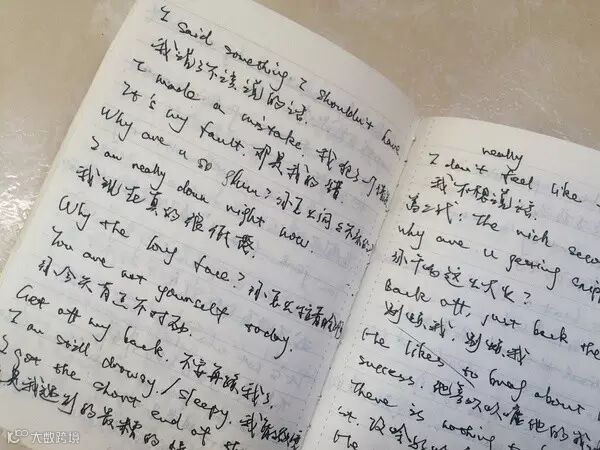 I said something I shouldn't have
我说了不该说的话.
I made a mistake. 我犯了一个错误
It's my fault. 那是我的错
Why are u so glum? 你怎么闷闷不乐的
I am really down right now.
我现在真的很低落.
Why the long face? 你怎么拉着脸
You are not yourself today.
你今天有点不对劲.
Get off my back. 不要再烦我了.
I am still drowsy / sleepy. 我
I got the short end of the
是我遇到的最糟的情
really
I don't feel like
我不想说话.
高二我: The nick
why are u getting
你干嘛这么大火?
Back off, just back the
别烦我, 别烦我
He likes to brag about
success. 他喜欢吹嘘他的成
There is nothing to
it. 没啥好
He
大数跨境